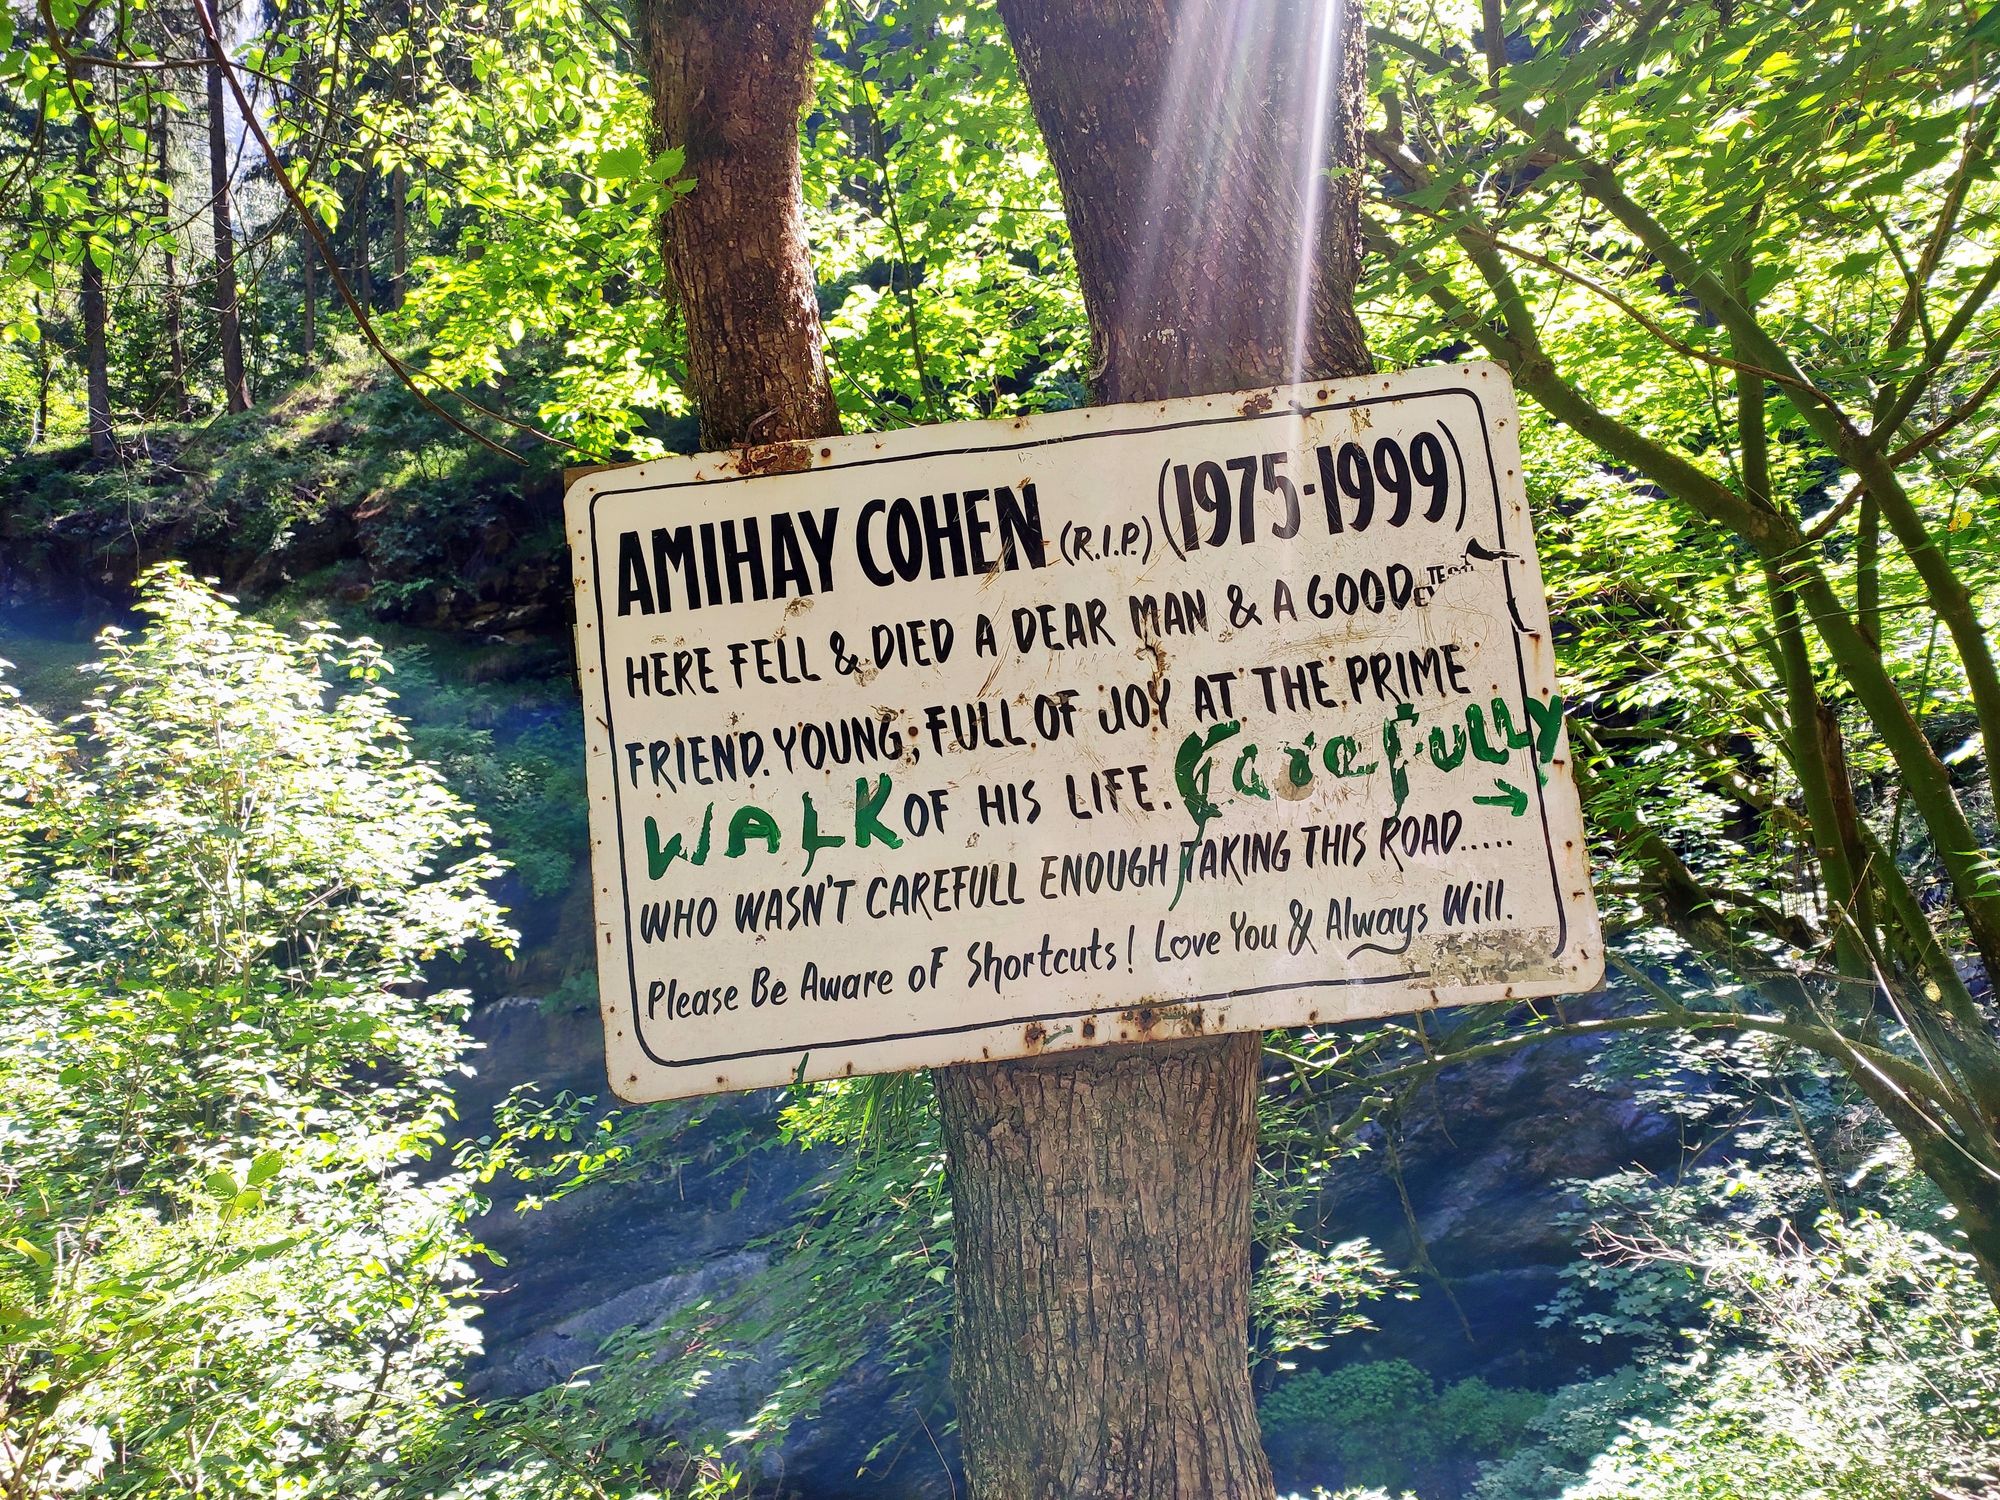 AMIHAY COHEN (R.I.P.) (1975-1999)
HERE FELL & DIED A DEAR MAN & A GOOD
FRIEND. YOUNG, FULL OF JOY AT THE PRIME
OF HIS LIFE.
WALK Carefully →
WHO WASN'T CAREFULL ENOUGH TAKING THIS ROAD.....
Please Be Aware oF Shortcuts! Love You & Always Will.